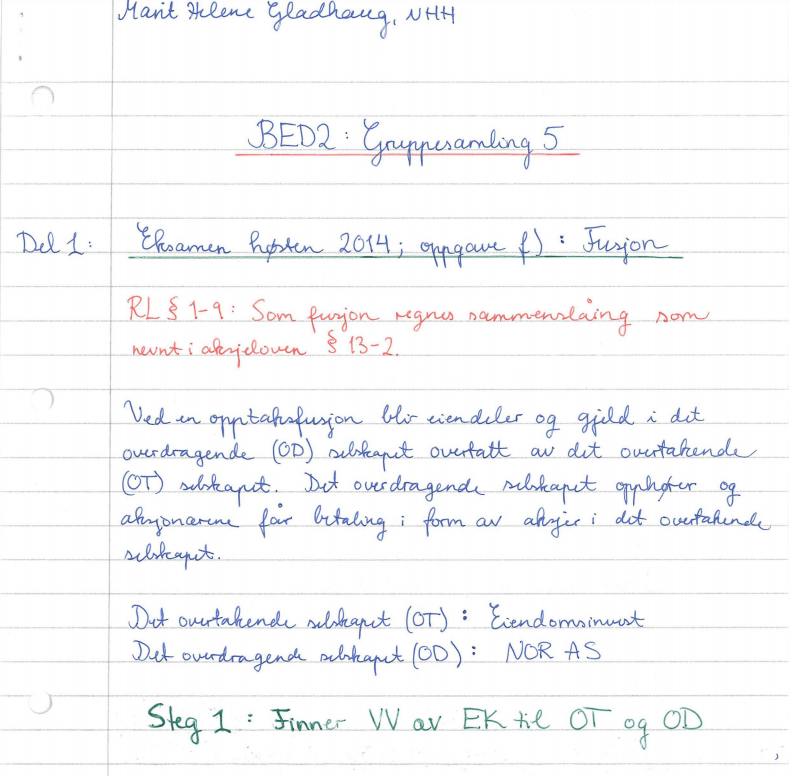 Marit Helene Gladhaug, NHH
BED2: Gruppesamling 5
Del 1: Eksamen høsten 2014; oppgave f) : Fusjon
RL § 1-9: Som fusjon regnes sammenslåing som
nevnt i aksjeloven § 13-2.
Ved en opptaksfusjon blir eiendeler og gjeld i det
overdragende (OD) selskapet overtatt av det overtakende
(OT) selskapet. Det overdragende selskapet opphører og
aksjonærene får betaling i form av aksjer i det overtakende
selskapet.
Det overtakende selskapet (OT) : Eiendomsinvest
Det overdragende selskapet (OD) : NOR AS
Steg 1 : Finner VV av EK til OT og OD